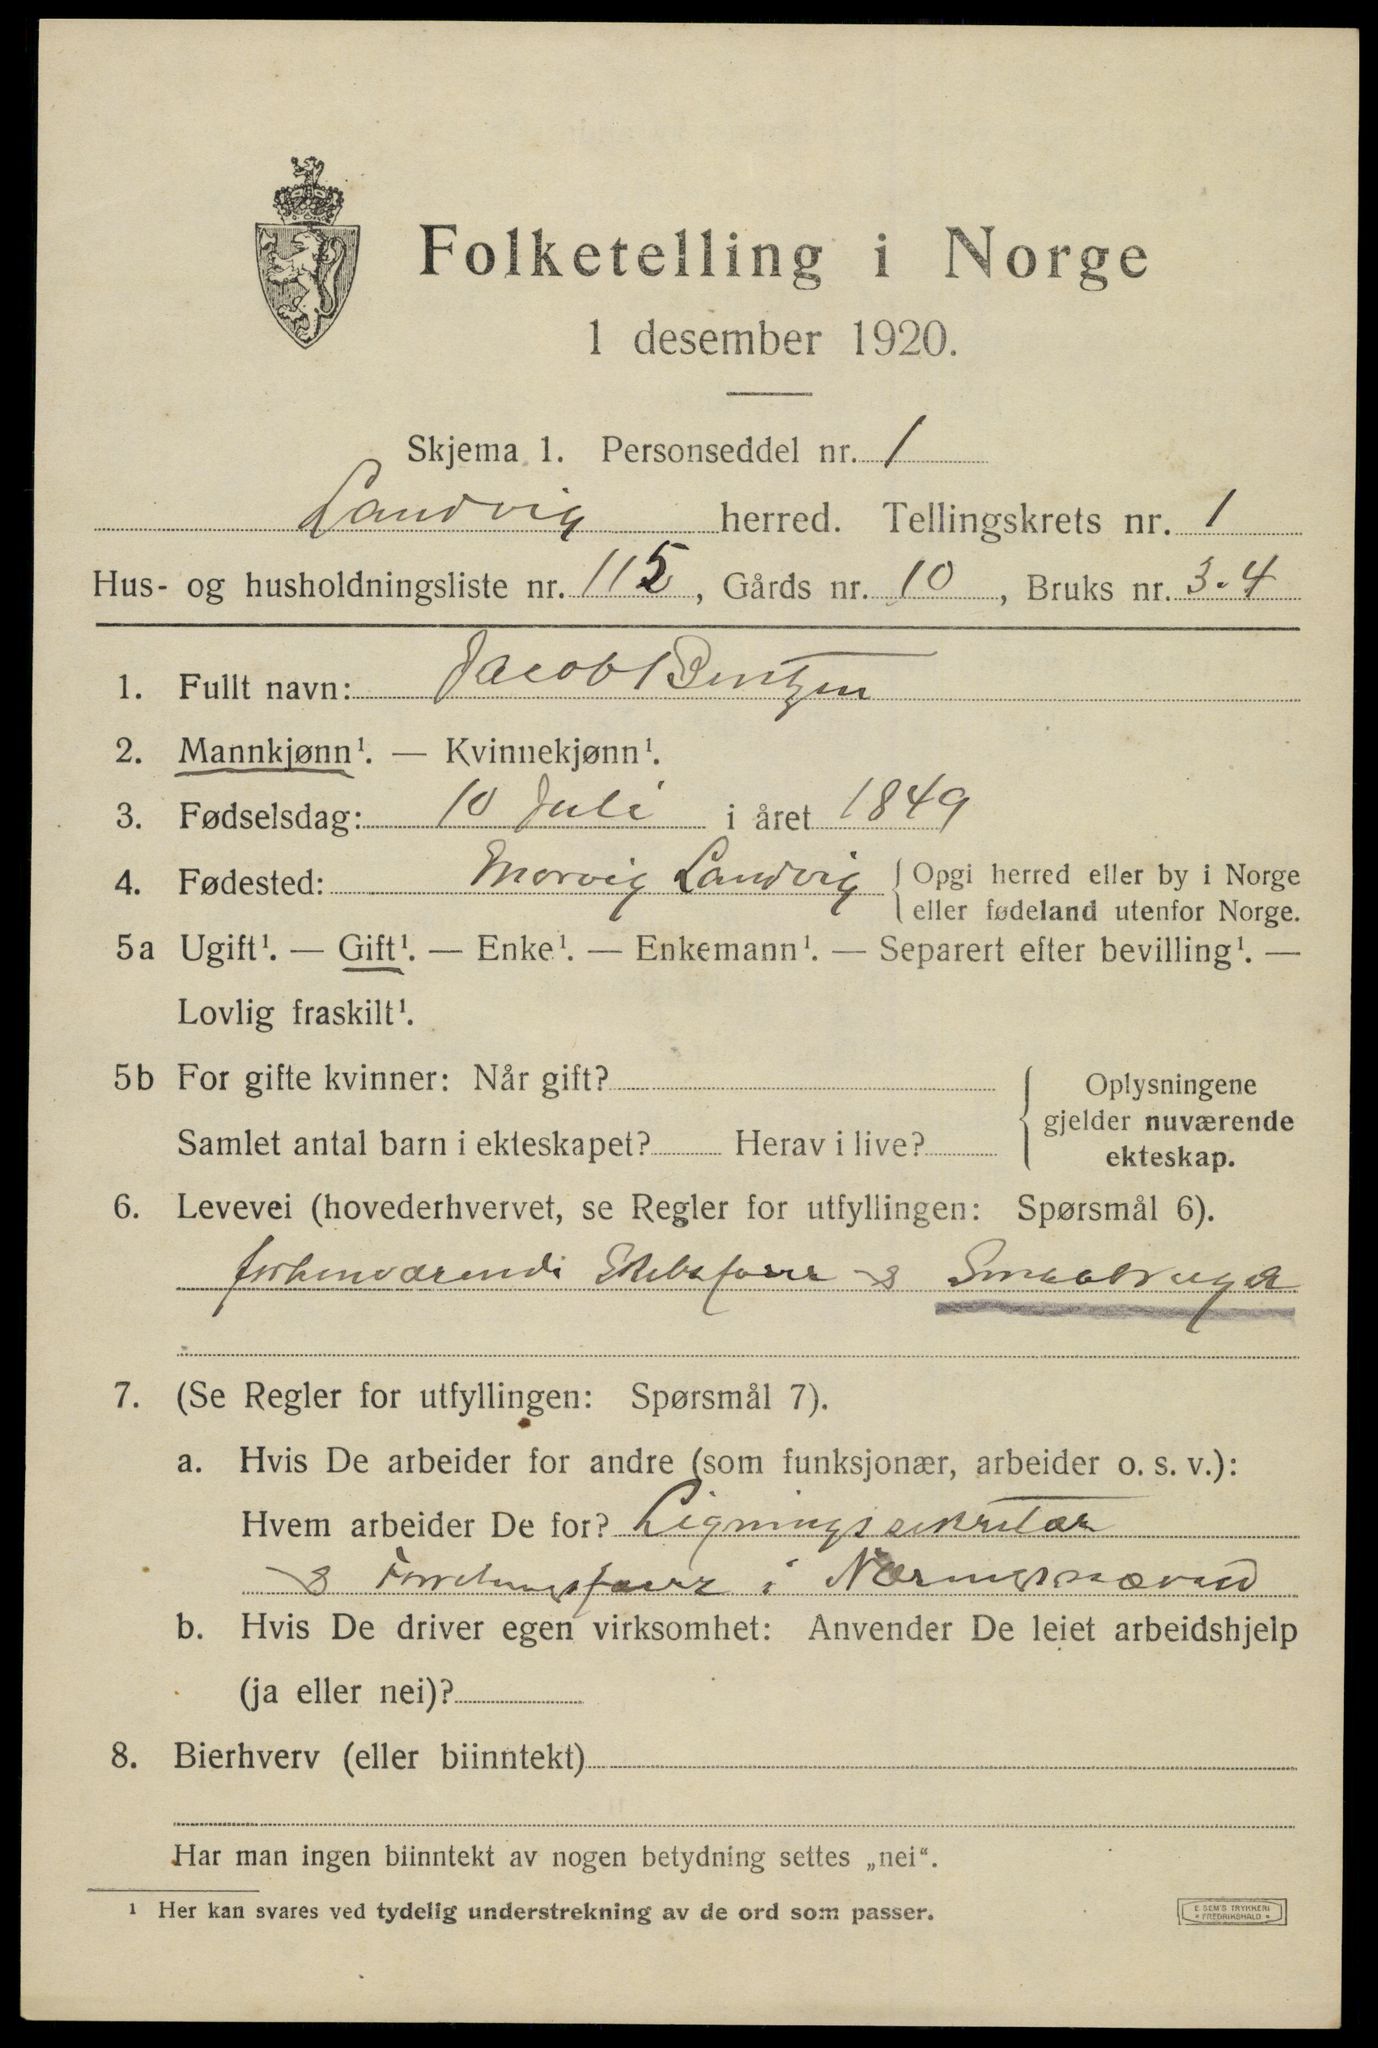 Folketelling i Norge
1 desember 1920.
Skjema 1. Personseddel nr. 1
Landvig herred. Tellingskrets nr. 1
Hus- og husholdningsliste nr. 115, Gårds nr. 10, Bruks nr. 3-4
1. Fullt navn: Jacob Bentzen
2. Mannkjønn¹. — Kvinnekjønn¹.
3. Fødselsdag: 10 Juli i året 1849
4. Fødested: Morvig Landvig { Opgi herred eller by i Norge
eller fødeland utenfor Norge.
5a Ugift¹. — Gift¹. — Enke¹. — Enkemann¹. — Separert efter bevilling¹. —
Lovlig fraskilt¹.
5b For gifte kvinner: Når gift? { Oplysningene
gjelder nuværende
Samlet antal barn i ekteskapet? Herav i live? ekteskap.
6. Levevei (hovederhvervet, se Regler for utfyllingen: Spørsmål 6).
forhenværende Skibsfører & Smaabruger
7. (Se Regler for utfyllingen: Spørsmål 7).
a. Hvis De arbeider for andre (som funksjonær, arbeider o. s. v.):
Hvem arbeider De for? Ligningssekretær
& Forretningsfører i Næringsnævnd
b. Hvis De driver egen virksomhet: Anvender De leiet arbeidshjelp
(ja eller nei)?
8. Bierhverv (eller biinntekt)
Har man ingen biinntekt av nogen betydning settes „nei“.
¹ Her kan svares ved tydelig understrekning av de ord som passer.
E SEM'S TRYKKERI
* FREDRIKSHALD *